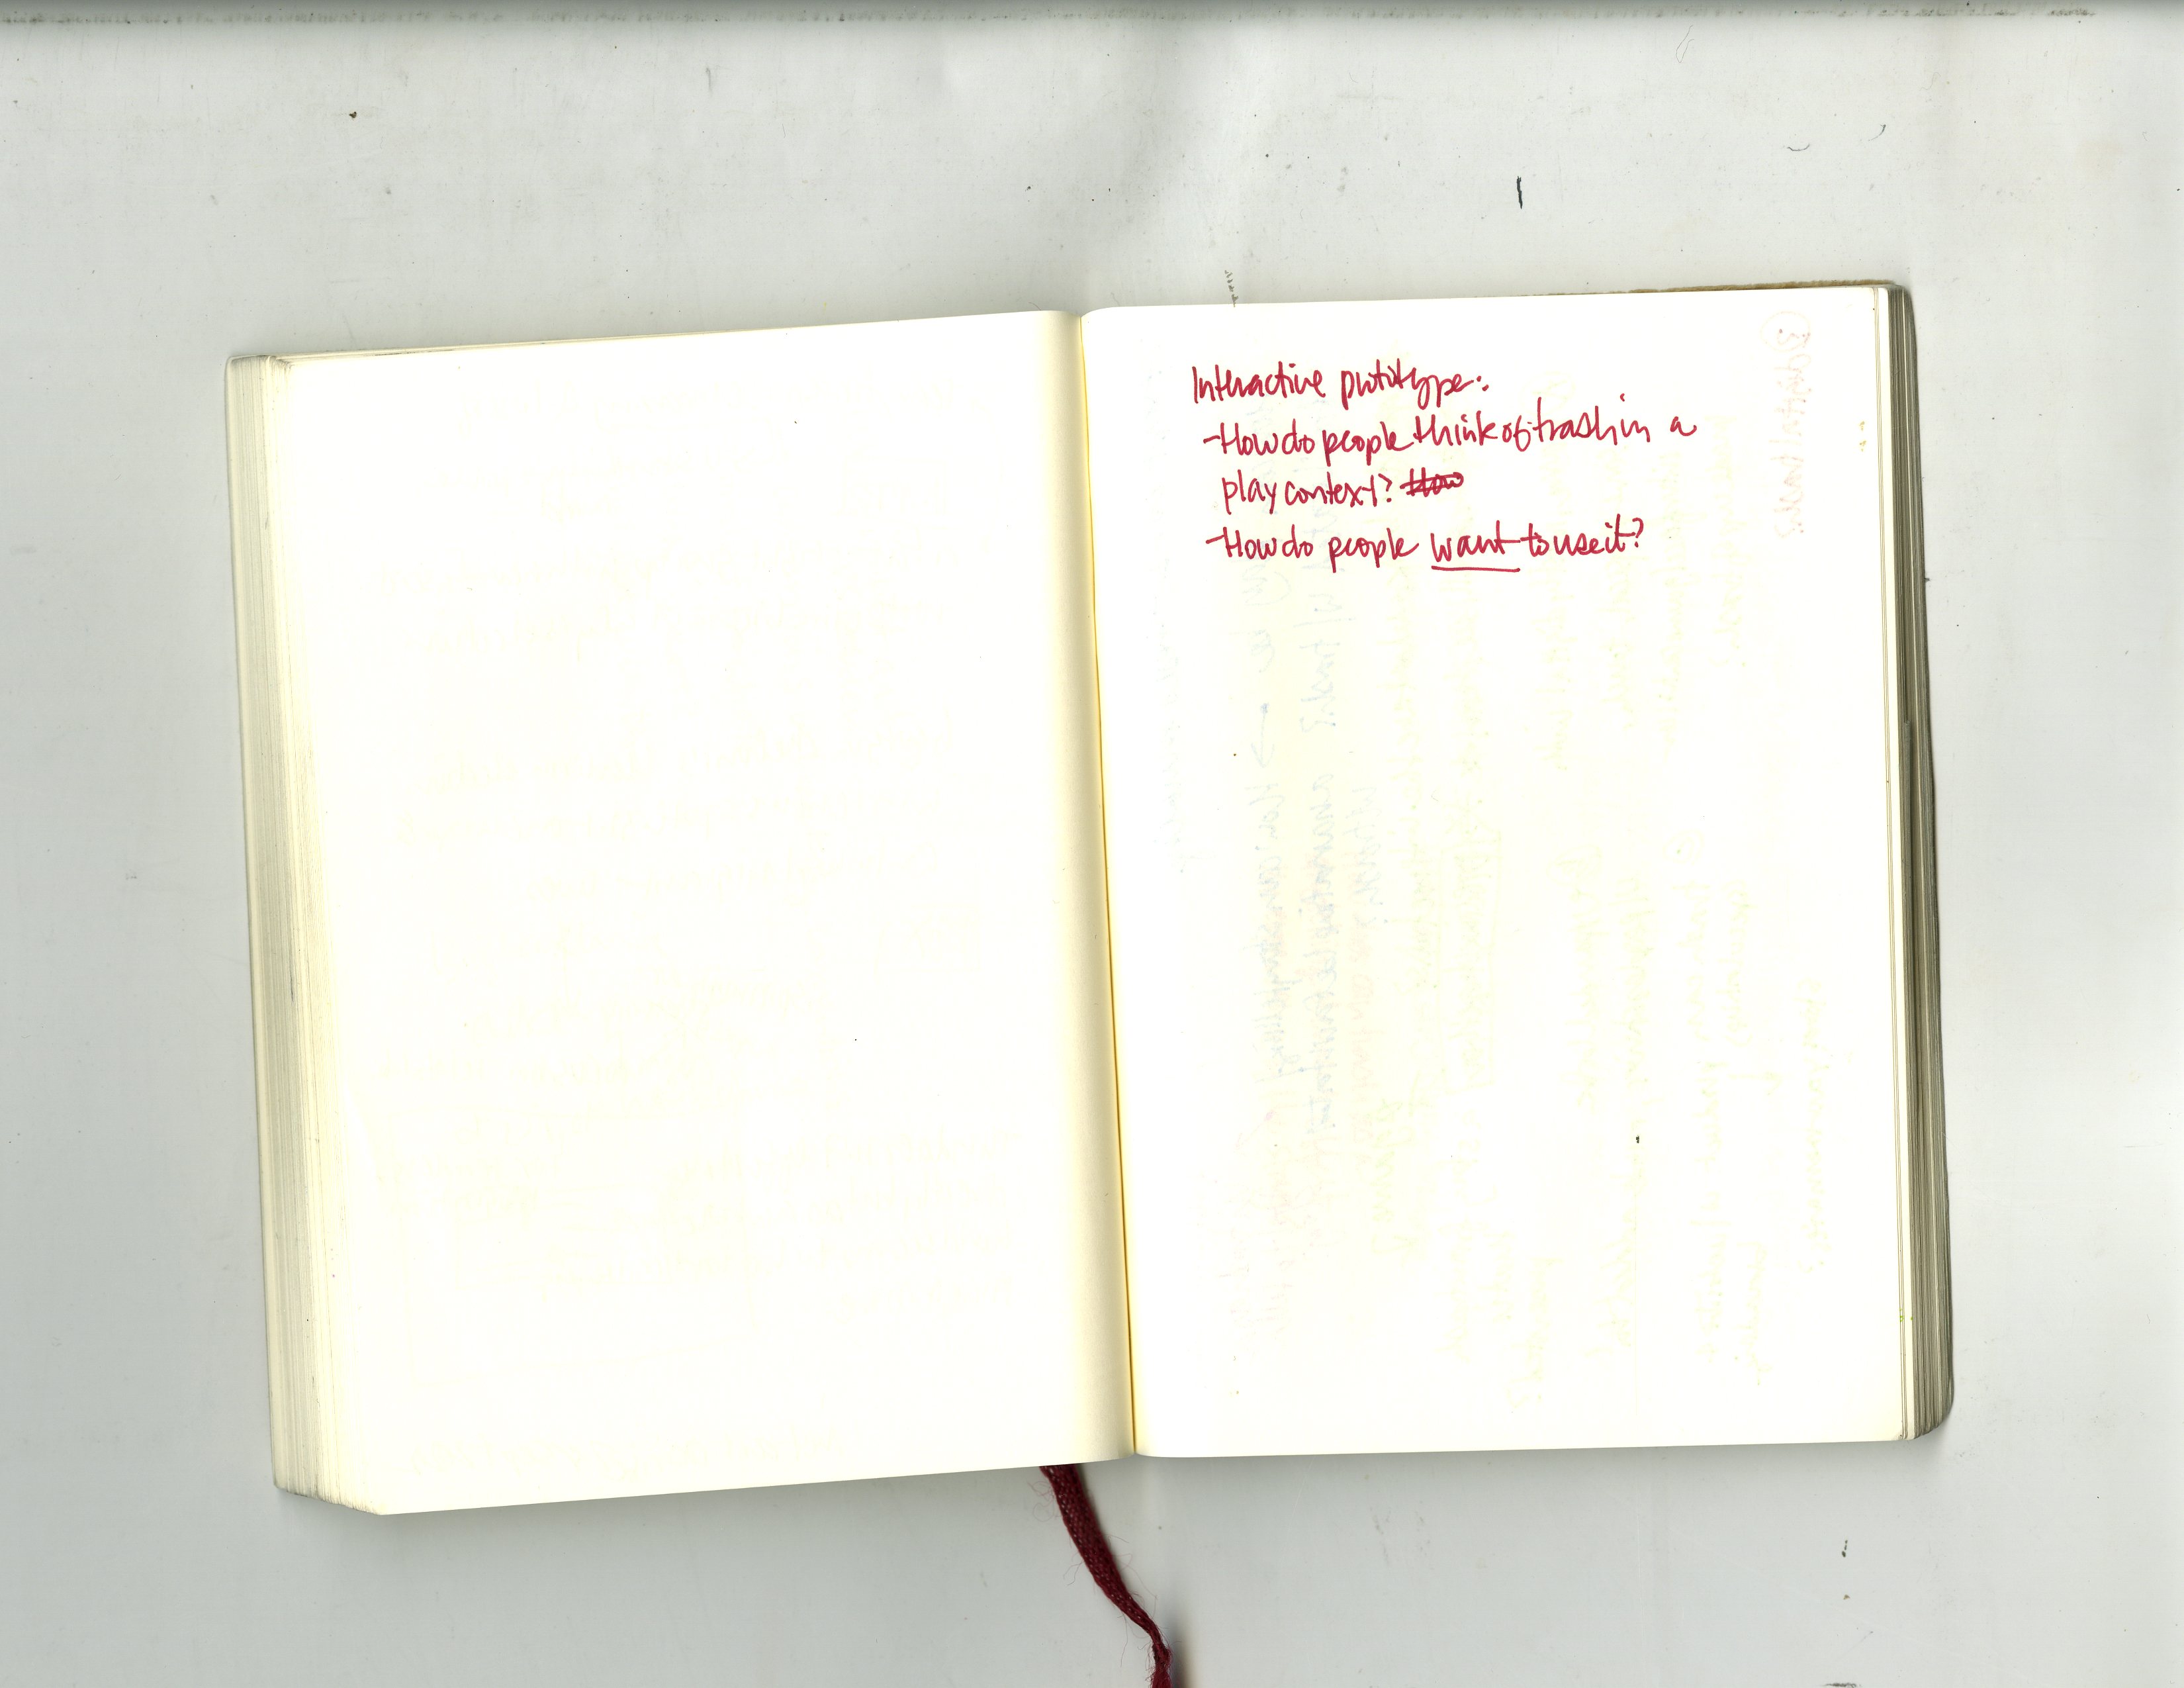 Interactive prototype:
-How do people think of trash in a
play context? How
-How do people want to use it?